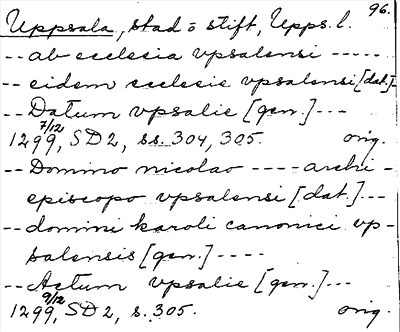 96.
Uppsala, stad o stift, Upps. l.
-- ab ecclesia vpsalensi -----
-- eidem ecclesie vpsalensi [dat.] --
-- Datum vpsalie [gen.] ---
7/12
1299, SD2, ss. 304, 305. orig.
-- Domino nicolao ---- archi-
episcopo vpsalensi [dat.] ---
-- domini karoli canonici vp-
salensis [gen.] ----
-- Actum vpsalie [gen.] ---
9/12
1299, SD2, s. 305. orig.